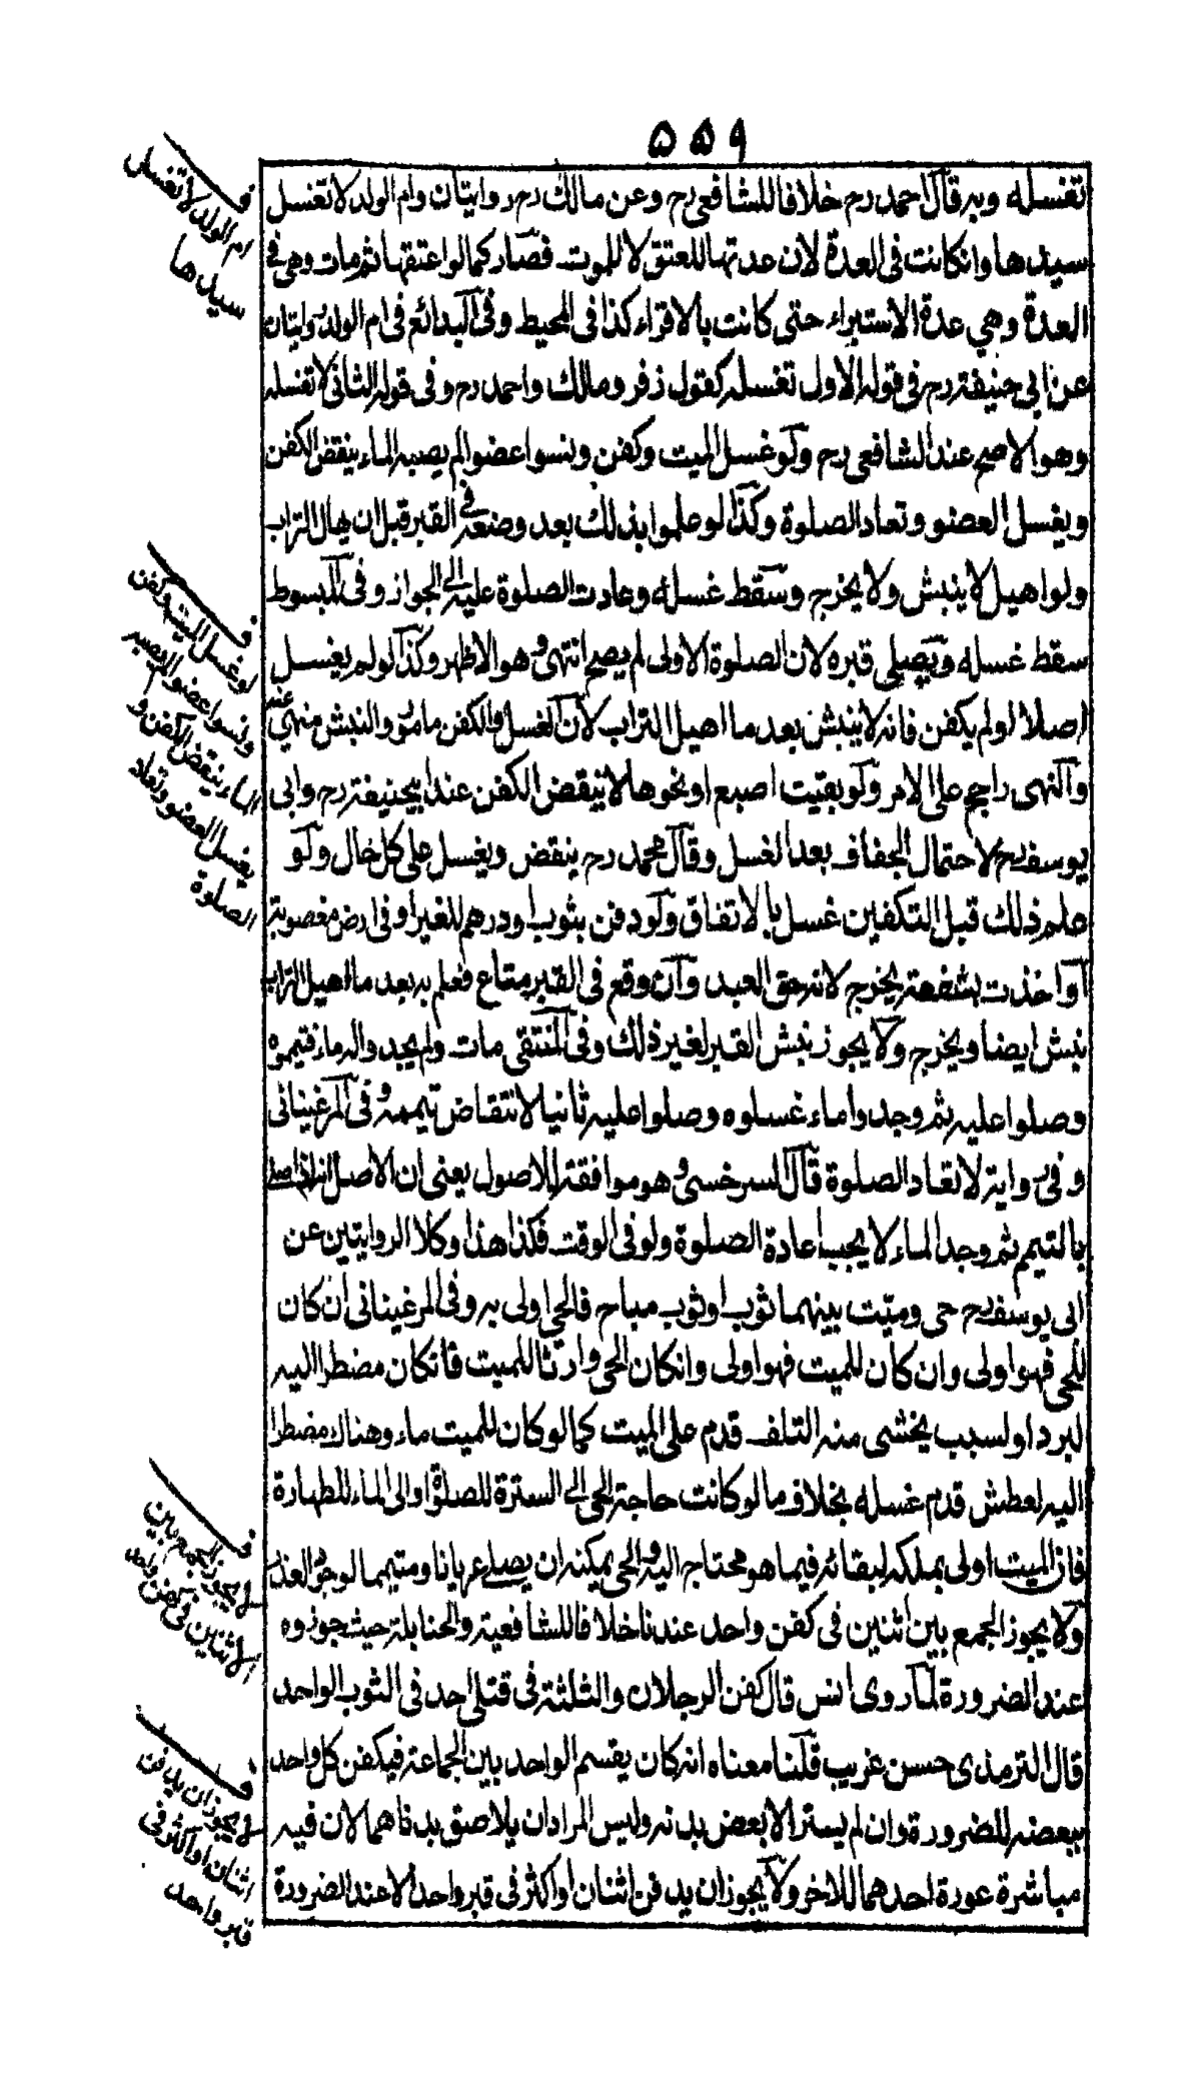 ٥٥٩
تغسله وبه قال احمد رح خلافا للشافعى رح وعن مالك رح روايتان وام الولد لا تغسل
سيدها وان كانت فى العدة لان عدتها للعتق لا للموت فصار كما لو اعتقها ثم مات وهى فى
العدة وهي عدة الاستبراء حتى كانت بالاقراء كذا فى المحيط وفى البدائع فى ام الولد روايتان
عن ابى حنيفة رح فى قوله الاول تغسله كقول زفر ومالك واحمد رح وفى قوله الثانى لا تغسله
وهو الاصح عند الشافعى رح ولو غسل الميت وكفن ونسوا عضوا لم يصبه الماء ينقض الكفن
ويغسل العضو وتعاد الصلوة وكذا لو علموا بذلك بعد وضعه فى القبر قبل ان يهال التراب
ولو اهيل لا ينبش ولا يخرج وسقط غسله وعادت الصلوة عليه الى الجواز وفى المبسوط
سقط غسله ويصلى قبره لان الصلوة الاولى لم يصح انتهى وهو الاظهر وكذا لو لم يغسل
اصلا او لم يكفن فانه لا ينبش بعد ما اهيل التراب لان الغسل والكفن مامور والنبش منهى عنه
والنهى راجح على الامر ولو بقيت اصبع او نحوها لا ينقض الكفن عند ابيحنيفة رح وابى
يوسف رح لاحتمال الجفاف بعد الغسل وقال محمد رح ينقض ويغسل على كل حال ولو
علم ذلك قبل التكفين غسل بالاتفاق ولو دفن بثوب او درهم للغير او فى ارض مغصوبة
او اخذت بشفعة يخرج لانه حق العبد وان وقع فى القبر متاع فعلم به بعد ما اهيل التراب
نبش ايضا ويخرج ولا يجوز نبش القبر لغير ذلك وفى المنتقى مات ولم يجدوا له ماء فتيمموه
وصلوا عليه ثم وجدوا ماء غسلوه وصلوا عليه ثانيا لانتقاض تيممه وفى المرغينانى
وفى رواية لا تعاد الصلوة قال السرخسى وهو موافقة للاصول يعنى ان الاصل انه اذا صلى
بالتيمم ثم وجد الماء لا يجب اعادة الصلوة ولو فى الوقت فكذا هذا وكلا الروايتين عن
ابى يوسف رح حى وميت بينهما ثوب او ثوب مباح فالحى اولى به وفى المرغينانى ان كان
للحى فهو اولى وان كان للميت فهو اولى وانكان الحى وارثا للميت فانكان مضطرا اليه
لبرد او لسبب يخشى منه التلف قدم على الميت كما لو كان للميت ماء وهناك مضطرا
اليه لعطش قدم غسله بخلاف ما لو كانت حاجة الحى الى السترة للصلوة او الى الماء للطهارة
فان الميت اولى بملكه لبقائه فيما هو محتاج اليه والحى يمكنه ان يصلى عريانا ومتيمما لوجود العذر
ولا يجوز الجمع بين اثنين فى كفن واحد عندنا خلافا للشافعية والحنابلة حيث جوزوه
عند الضرورة لما روى انس قال كفن الرجلان والثلثة فى قتلى احد فى الثوب الواحد
قال الترمذى حسن غريب قلنا معناه انه كان يقسم الواحد بين الجماعة فيكفن كل واحد
ببعضه للضرورة وان لم يستر الا بعض بدنه وليس المراد ان يلاصق بدناهما لان فيه
مباشرة عورة احدهما للاخر ولا يجوز ان يدفن اثنان او اكثر فى قبر واحد الا عند الضرورة
ف
ام الولد لا تغسل
سيدها
ف
لو غسل الميت وكفن
ونسوا عضوا لم يصبه
الماء ينقض الكفن و
يغسل العضو وتعاد
الصلوة
ف
لا يجوز الجمع بين
الاثنين فى كفن واحد
ف
لا يجوز ان يدفن
اثنان او اكثر فى
قبر واحد